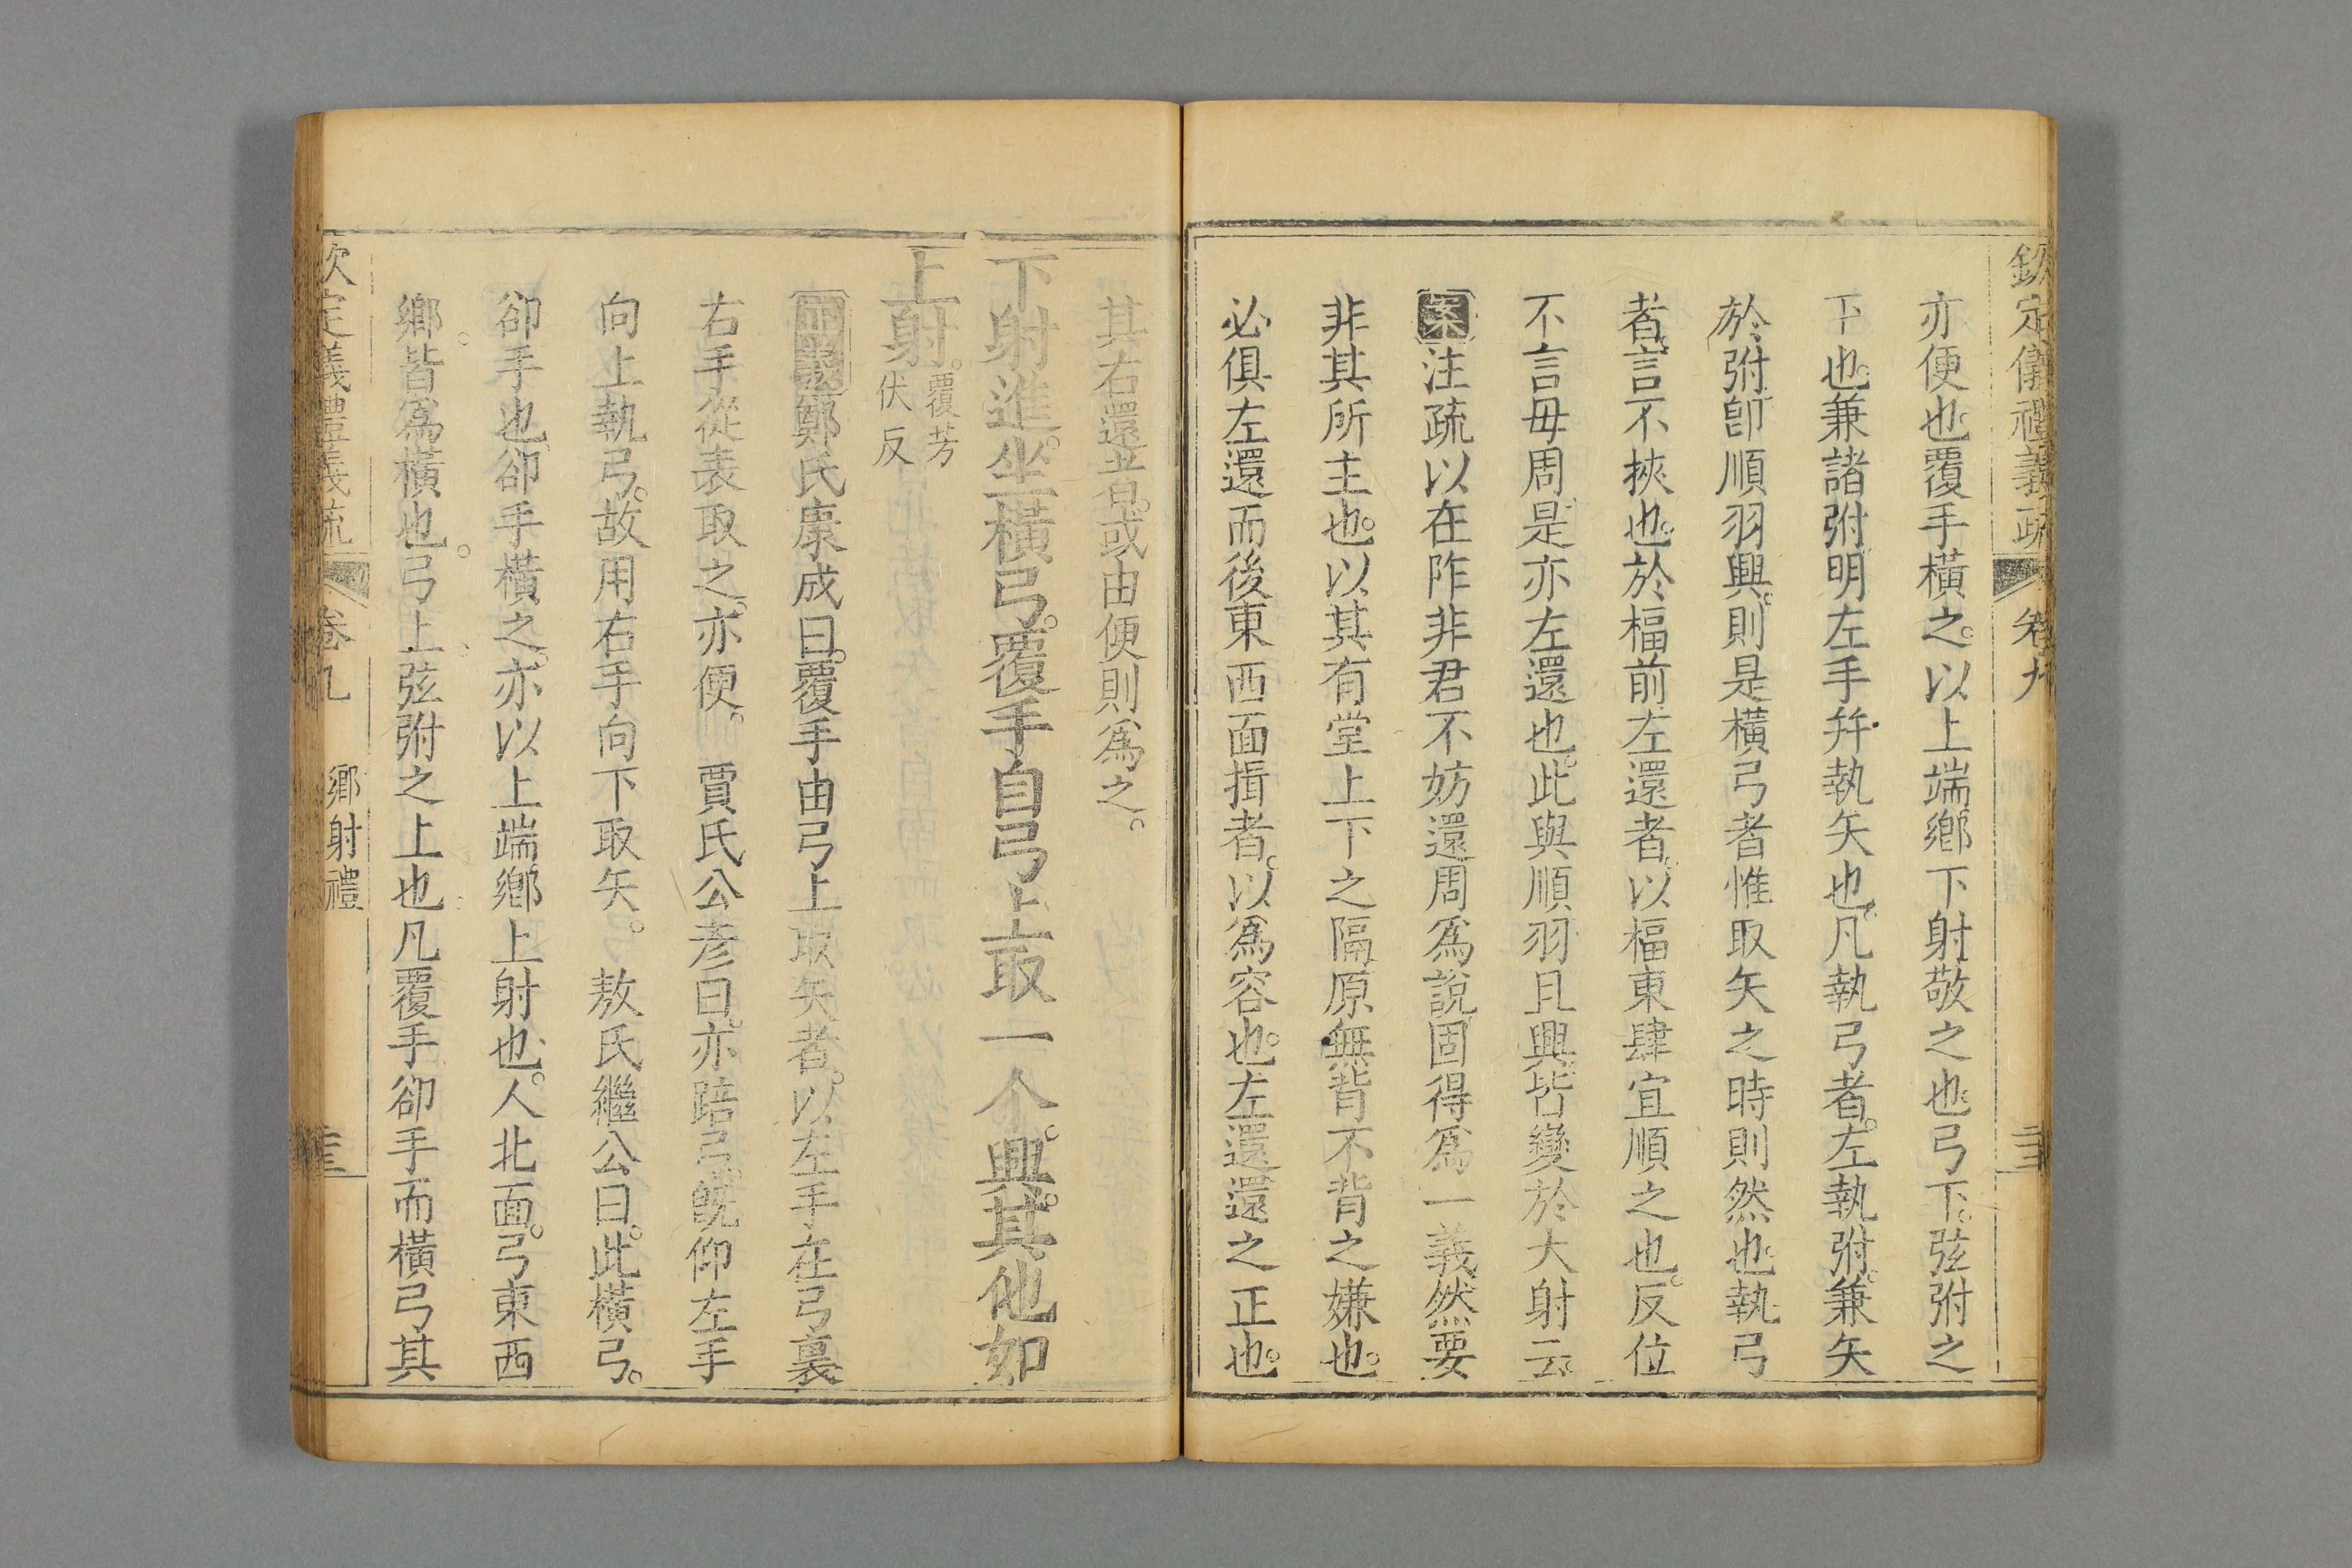 欽定儀禮義疏 卷九
亦便也覆手橫之以上端鄉下射敬之也弓下弦弣之
下也兼諸弣明左手幷執矢也凡執弓者左執弣兼矢
於弣卽順羽興則是橫弓者惟取矢之時則然也執弓
者言不挾也於楅前左還者以楅東肆宜順之也反位
不言毋周是亦左還也此與順羽且興皆變於大射云
案注疏以在阼非君不妨還周爲說固得爲一義然要
非其所主也以其有堂上下之隔原無背不背之嫌也
必俱左還而後東西面揖者以爲容也左還還之正也
其右還者或由便則爲之
下射進坐橫弓覆手自弓上取一个興其他如
上射覆芳伏反
正義鄭氏康成曰覆手由弓上取矢者以左手在弓裏
右手從表取之亦便 賈氏公彥曰亦踣弓旣仰左手
向上執弓故用右手向下取矢 敖氏繼公曰此橫弓
卻手也卻手橫之亦以上端鄉上射也人北面弓東西
鄉皆爲橫也弓上弦弣之上也凡覆手卻手而橫弓其
欽定義禮義疏 卷九 鄉射禮